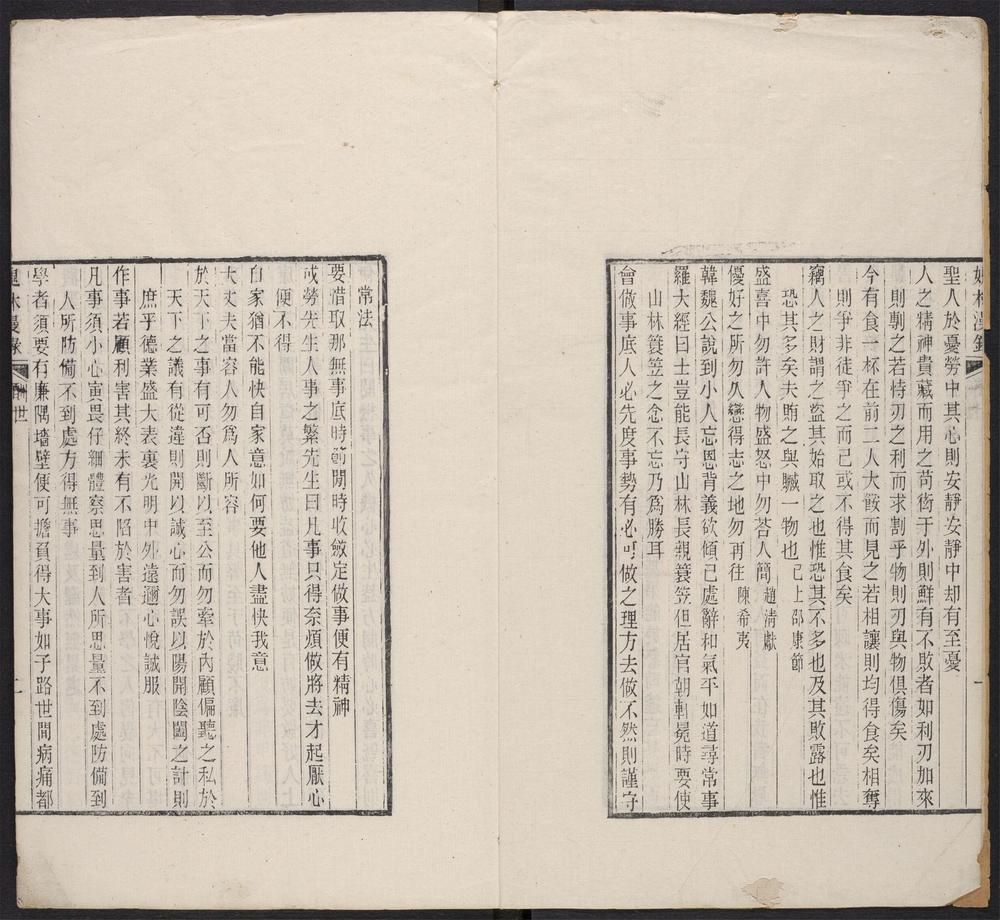 聖人於憂勞中其心則安靜安靜中却有至憂
人之精神貴藏而用之苟衒于外則鮮有不敗者如利刃加來
則剸之若恃刃之利而求割乎物則刃與物俱傷矣
今有食一杯在前二人大餒而見之若相讓則均得食矣相奪
則爭非徒爭之而已或不得其食矣
竊人之財謂之盜其始取之也惟恐其不多也及其敗露也惟
恐其多矣夫賄之與贓一物也已上邵康節
盛喜中勿許人物盛怒中勿荅人簡趙清獻
優好之所勿久戀得志之地勿再往陳希夷
韓魏公說到小人忘恩背義欲傾己處辭和氣平如道尋常事
羅大經曰士豈能長守山林長親簑笠但居官朝軒冕時要使
山林簑笠之念不忘乃爲勝耳
會做事底人必先度事勢有必可做之理方去做不然則謹守
常法
要惜取那無事底時節閒時收斂定做事便有精神
或勞先生人事之繁先生曰凡事只得奈煩做將去才起厭心
便不得
自家猶不能快自家意如何要他人盡快我意
大丈夫當容人勿爲人所容
於天下之事有可否則斷以至公而勿牽於內顧偏聽之私於
天下之議有從違則開以誠心而勿誤以陽開陰闔之計則
庶乎德業盛大表裏光明中外遠邇心悅誠服
作事若顧利害其終未有不陷於害者
凡事須小心寅畏仔細體察思量到人所思量不到處防備到
人所防備不到處方得無事
學者須要有廉隅墻壁便可擔負得大事如子路世間病痛都
酬世
二